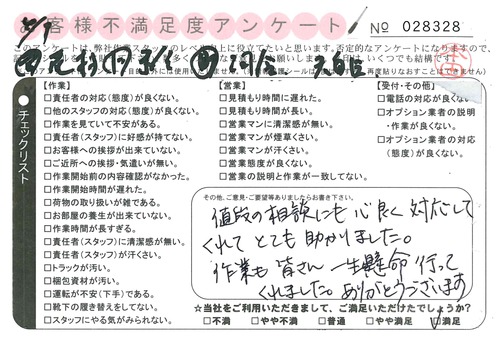 お客様不満足度アンケート
No 028328
【作業】
□責任者の対応（態度）が良くない。
□他のスタッフの対応（態度）が良くない。
□作業を見ていて不安がある。
□責任者（スタッフ）に好感が持てない。
□お客様への挨拶が出来ていない。
□ご近所への挨拶・気遣いが無い。
□作業開始前の内容確認がなかった。
□作業開始時間が遅れた。
□荷物の取り扱いが雑である。
□お部屋の養生が出来ていない。
□作業時間が長すぎる。
□責任者（スタッフ）に清潔感が無い。
□責任者（スタッフ）が汗くさい。
□トラックが汚い。
□梱包資材が汚い。
□運転が不安（下手）である。
□靴下の履き替えをしてない。
□スタッフにやる気がみられない。
【営業】
□見積もり時間に遅れた。
□見積もり時間が長い。
□営業マンに清潔感が無い。
□営業マンが煙草くさい。
□営業マンが汗くさい。
□営業態度が良くない。
□営業の説明と作業が一致してない。
【受付・その他】
□電話の対応が良くない。
□オプション業者の説明
・作業が良くない。
□オプション業者の対応
（態度）が良くない。
チェックリスト
その他、ご意見・ご要望等ありましたらお書き下さい。
値段の相談にも心良く対応して
くれてとても助かりました。
作業も皆さん一生懸命行って
くれました。ありがとうございます
☆当社をご利用いただきまして、ご満足いただけたでしょうか？
□不満 □やや不満 □普通 □やや満足 □満足